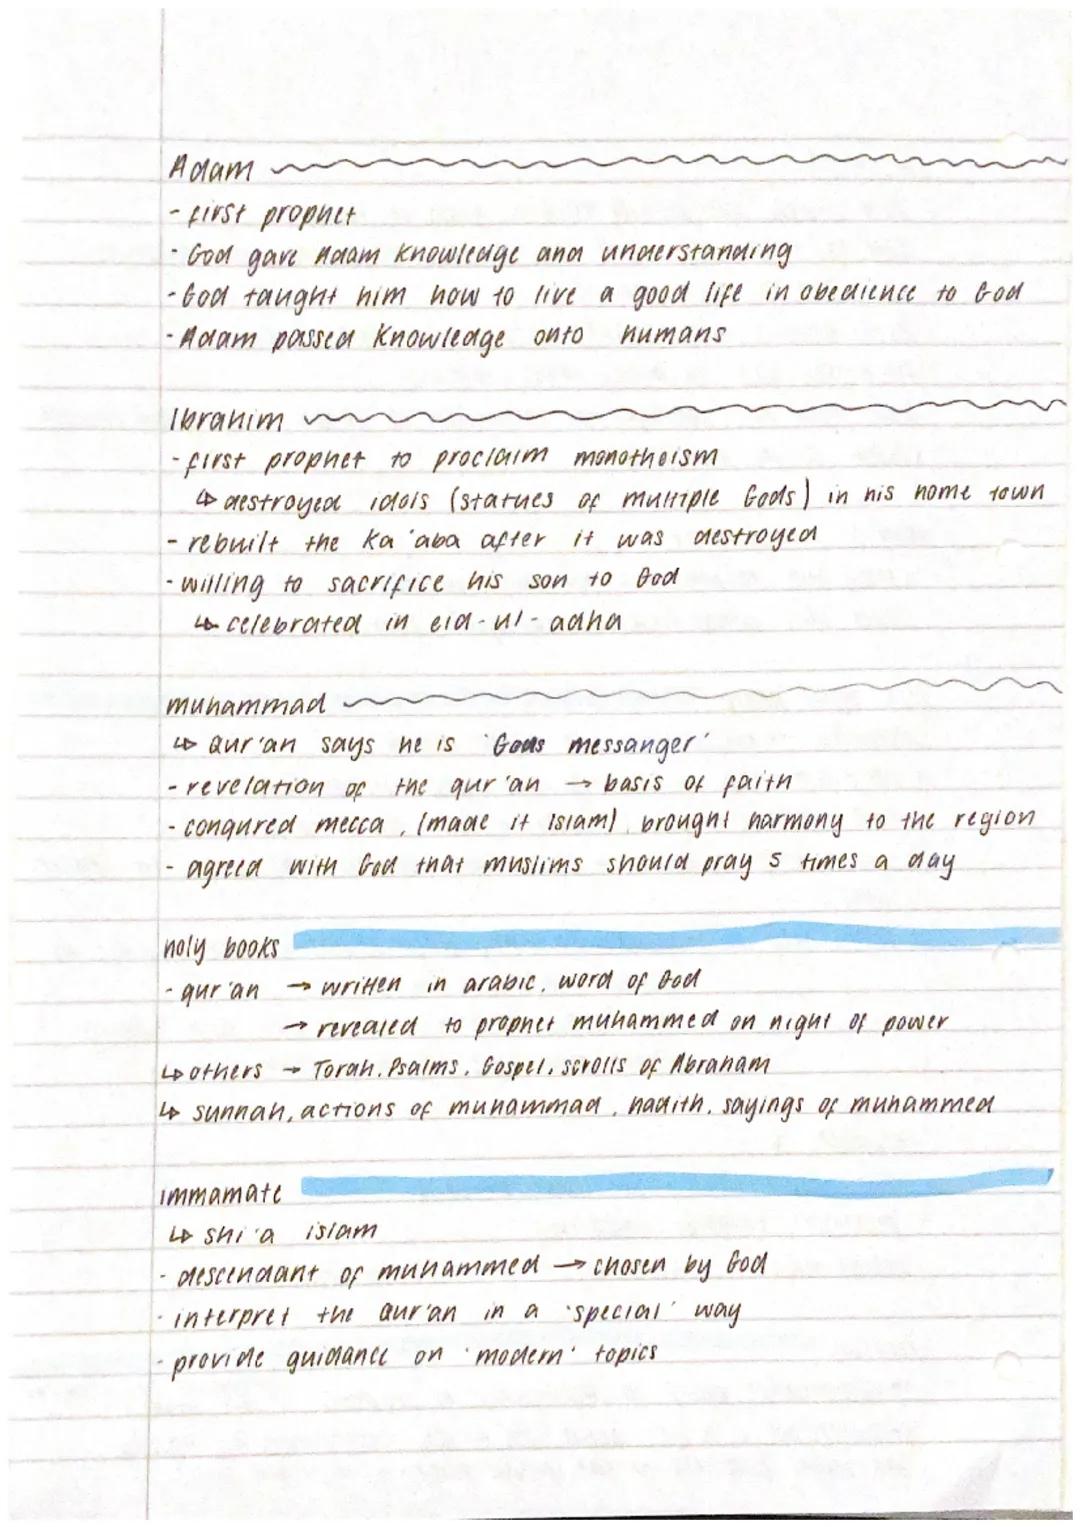 Adam
- first prophet
- God gave Adam knowledge and understanding
- God taught him how to live a good life in obedience to God
- Adam passed knowledge onto humans
Ibrahim
- first prophet to proclaim monotheism
↳ destroyed idols (statues of multiple Gods) in his home town
- rebuilt the Ka'aba after it was destroyed
- willing to sacrifice his son to God
↳ celebrated in eid-ul-adha
muhammad
↳ Qur'an says he is 'Gods messanger'
- revelation of the qur'an → basis of faith
- conqured mecca, (made it islam), brought harmony to the region
- agreed with God that muslims should pray 5 times a day
holy books
- qur'an → written in arabic, word of God
→ revealed to prophet muhammed on night of power
↳ others → Torah, Psalms, Gospel, scrolls of Abraham
↳ sunnah, actions of muhammad, hadith, sayings of muhammed
immamate
↳ shi'a islam
- descendant of muhammed → chosen by God
- interpret the Qur'an in a 'special' way
- provide guidance on 'modern' topics